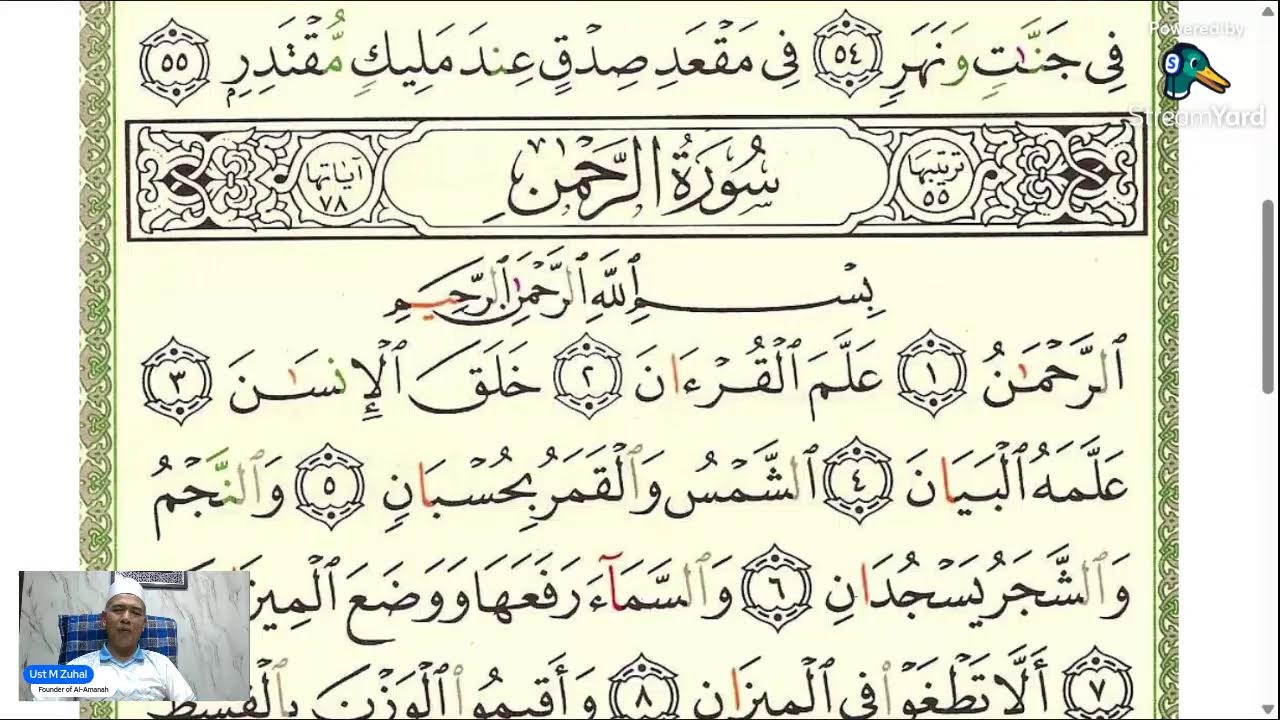 فِى جَنَّـٰتٍ وَنَهَرٍ ٥٤ فِى مَقْعَدِ صِدْقٍ عِندَ مَلِيكٍ مُّقْتَدِرٍ ٥٥
Powered by
StreamYard
ترتيبها ٥٥ سُورَةُ الرَّحْمٰنِ آياتها ٧٨
بِسْمِ ٱللَّهِ ٱلرَّحْمَـٰنِ ٱلرَّحِيمِ
ٱلرَّحْمَـٰنُ ١ عَلَّمَ ٱلْقُرْءَانَ ٢ خَلَقَ ٱلْإِنسَـٰنَ ٣
عَلَّمَهُ ٱلْبَيَانَ ٤ ٱلشَّمْسُ وَٱلْقَمَرُ بِحُسْبَانٍ ٥ وَٱلنَّجْمُ
وَٱلشَّجَرُ يَسْجُدَانِ ٦ وَٱلسَّمَآءَ رَفَعَهَا وَوَضَعَ
٧ أَلَّا تَطْغَوْا۟ فِى ٱلْمِيزَانِ ٨ وَأَقِيمُوا۟ ٱلْوَزْنَ بِٱلْقِسْطِ
Ust M Zuhal
Founder of Al-Amanah